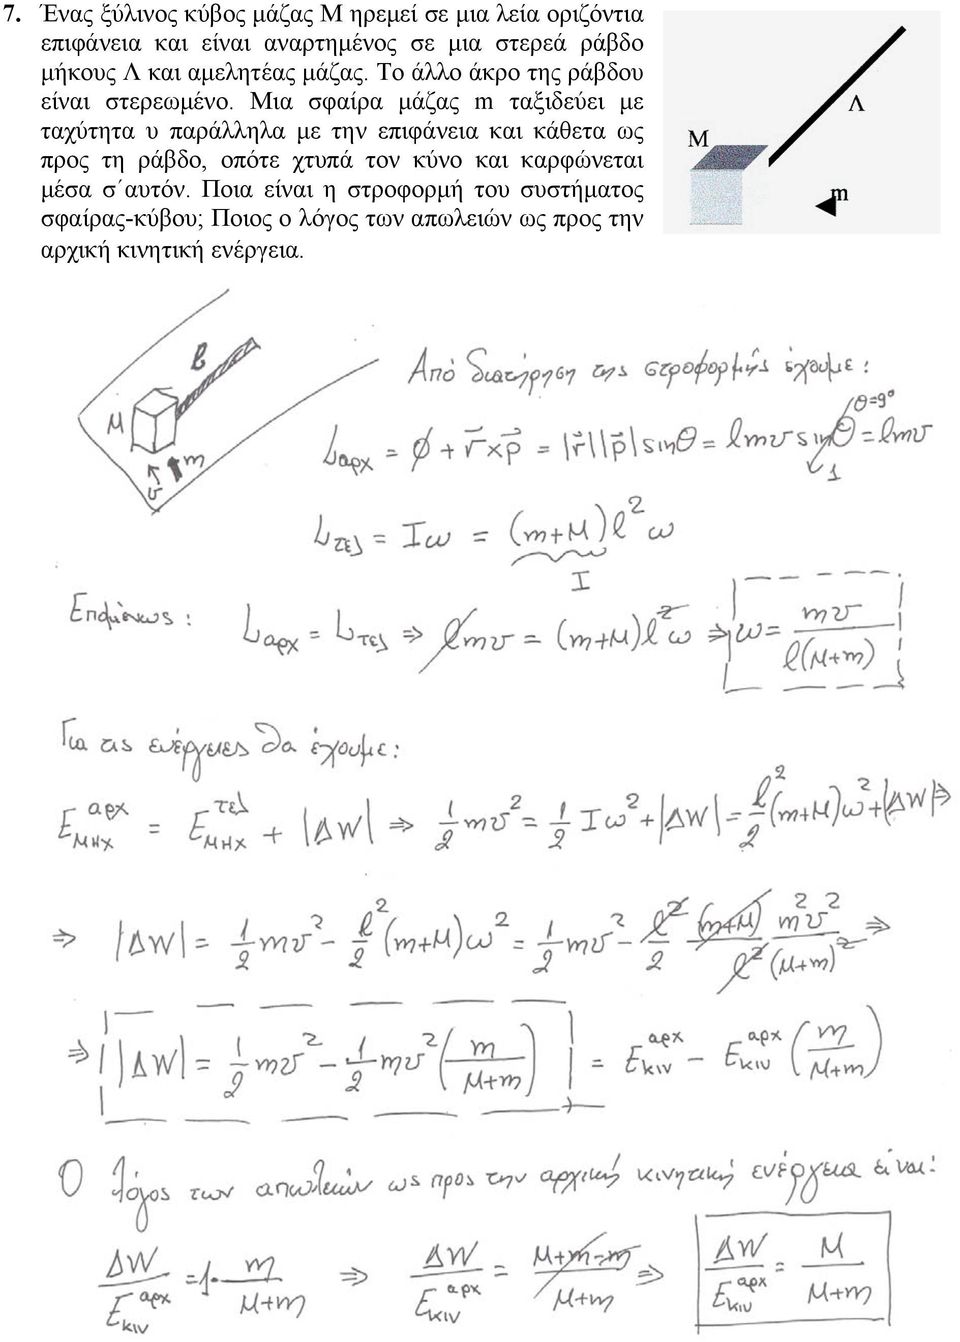 7. Ένας ξύλινος κύβος μάζας Μ ηρεμεί σε μια λεία οριζόντια
επιφάνεια και είναι αναρτημένος σε μια στερεά ράβδο
μήκους Λ και αμελητέας μάζας. Το άλλο άκρο της ράβδου
είναι στερεωμένο. Μια σφαίρα μάζας m ταξιδεύει με
ταχύτητα υ παράλληλα με την επιφάνεια και κάθετα ως
προς τη ράβδο, οπότε χτυπά τον κύνο και καρφώνεται
μέσα σ΄αυτόν. Ποια είναι η στροφορμή του συστήματος
σφαίρας-κύβου; Ποιος ο λόγος των απωλειών ως προς την
αρχική κινητική ενέργεια.
Λ
M
m
ℓ
M
m
υ
Από διατήρηση της στροφορμής έχουμε:
L αρχ = 0 + r⃗ × p⃗ = |r⃗||p⃗| sinθ = ℓmυ sinθ = ℓmυ
θ=9°
1
L τελ = Iω = (m+M)ℓ² ω
I
Επομένως: L αρχ = L τελ ⇒ ℓmυ = (m+M)ℓ² ω ⇒ ω = mυ / ℓ(M+m)
Για τις ενέργειες θα έχουμε:
E ΜΗΧ αρχ = E ΜΗΧ τελ + |ΔW| ⇒ 1/2 mυ² = 1/2 Iω² + |ΔW| = ℓ²/2 (m+M)ω² + |ΔW| ⇒
⇒ |ΔW| = 1/2 mυ² - ℓ²/2 (m+M)ω² = 1/2 mυ² - ℓ²/2 (m+M) m²υ² / ℓ²(M+m)² ⇒
⇒ |ΔW| = 1/2 mυ² - 1/2 mυ² (m / M+m) = E κιν αρχ - E κιν αρχ (m / M+m)
Ο λόγος των απωλειών ως προς την αρχική κινητική ενέργεια είναι:
ΔW / E κιν αρχ = 1 - m / M+m ⇒ ΔW / E κιν αρχ = M+m-m / M+m ⇒ ΔW / E κιν αρχ = M / M+m